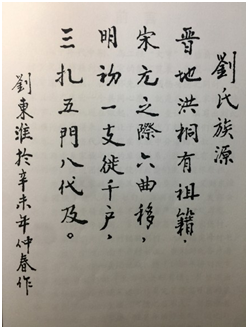 劉氏族源
晋地洪桐有祖籍.
宋元之際六曲移,
明初一支徙千户,
三扎五門八代及。
劉東淮於辛未年仲春作